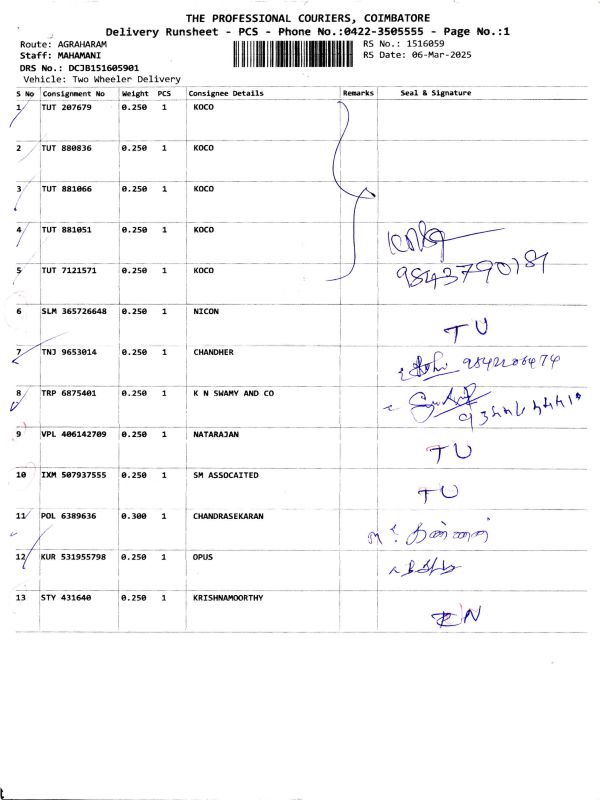 THE PROFESSIONAL COURIERS, COIMBATORE
Delivery Runsheet - PCS - Phone No.:0422-3505555 - Page No.:1
Route: AGRAHARAM RS No.: 1516059
Staff: MAHAMANI RS Date: 06-Mar-2025
DRS No.: DCJB151605901
Vehicle: Two Wheeler Delivery
S No Consignment No Weight PCS Consignee Details Remarks Seal & Signature
1 TUT 207679 0.250 1 KOCO
2 TUT 880836 0.250 1 KOCO
3 TUT 881066 0.250 1 KOCO
4 TUT 881051 0.250 1 KOCO
5 TUT 7121571 0.250 1 KOCO
6 SLM 365726648 0.250 1 NICON TU
7 TNJ 9653014 0.250 1 CHANDHER
8 TRP 6875401 0.250 1 K N SWAMY AND CO
9 VPL 406142709 0.250 1 NATARAJAN TU
10 IXM 507937555 0.250 1 SM ASSOCAITED TU
11 POL 6389636 0.300 1 CHANDRASEKARAN
12 KUR 531955798 0.250 1 OPUS
13 STY 431640 0.250 1 KRISHNAMOORTHY